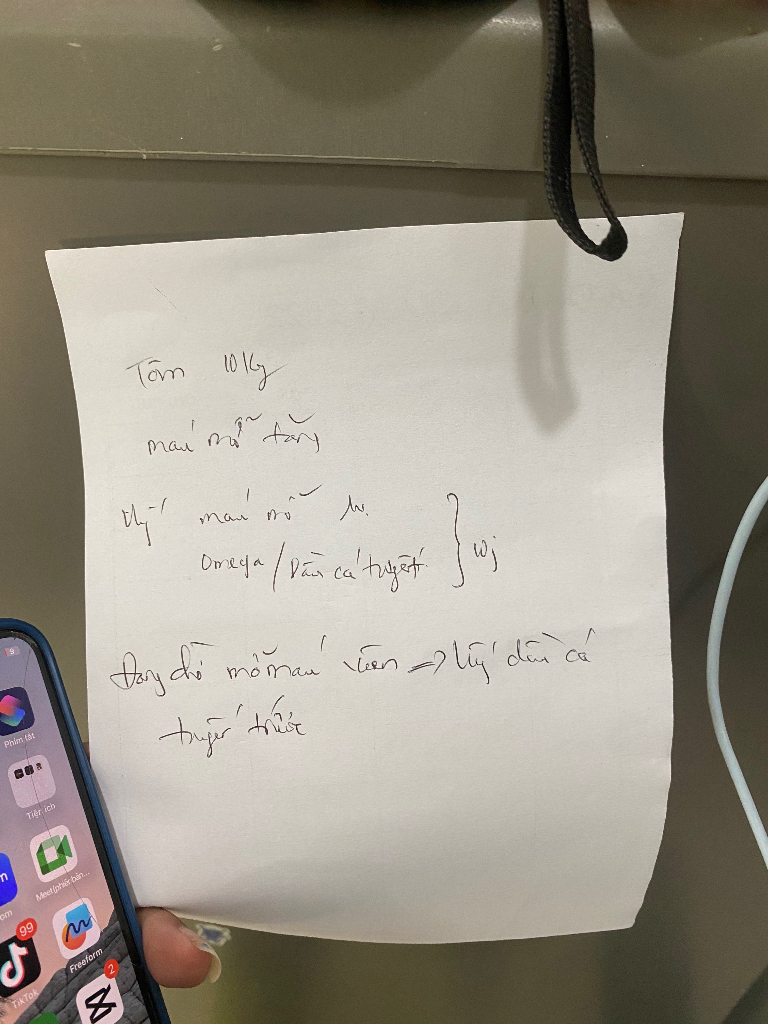 Tôm 10 kg
máu mỡ tăng
lấy máu mỡ
Omega / Dầu cá tuyết
Đang chờ mỡ máu viên => lấy dầu cá
tuyết trước
9
Phím tắt
Tiện ích
Meet (phiên bản...
om
99
TikTok
Freeform
2